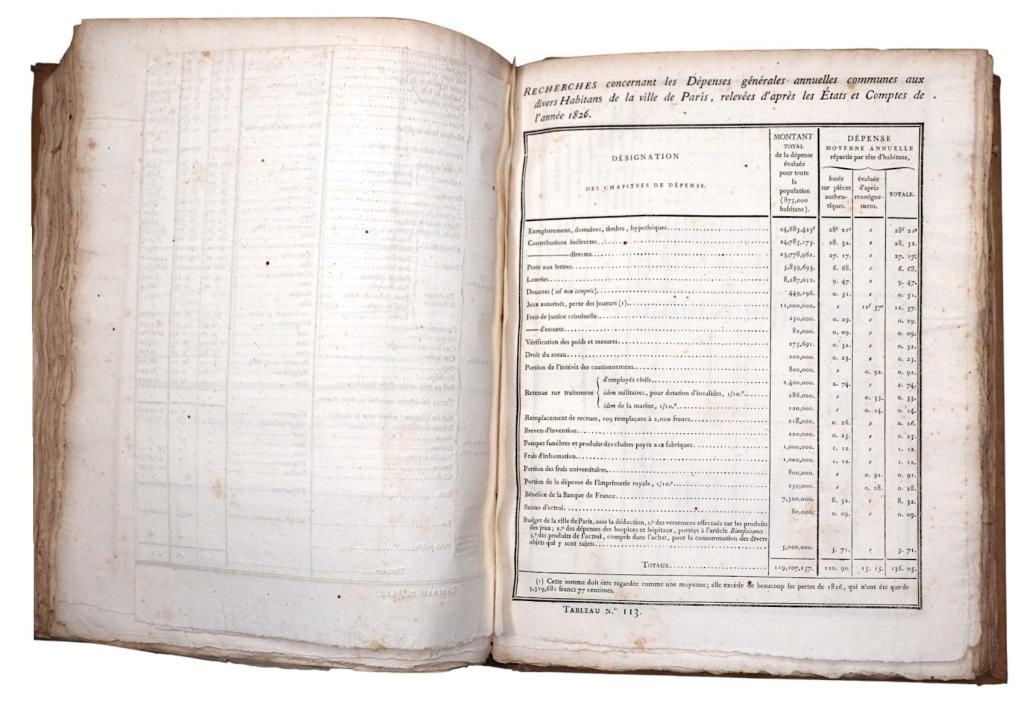 RECHERCHES concernant les Dépenses générales annuelles communes aux
divers Habitans de la ville de Paris, relevées d'après les États et Comptes de
l'année 1826.
DÉSIGNATION
DES CHAPITRES DE DÉPENSE.
MONTANT
TOTAL
de la dépense
évaluée
pour toute
la
population
(875,000
habitans).
DÉPENSE
MOYENNE ANNUELLE
répartie par tête d'habitans,
basée
sur pièces
authen-
tiques.
évaluée
d'après
renseigne-
mens.
TOTALE.
Enregistrement, domaines, timbre, hypothèques 24,685,423f 28f 21c " 28f 21c
Contributions indirectes 24,785,173. 28. 32. " 28. 32.
——— directes 23,778,961. 27. 17. " 27. 17.
Poste aux lettres 5,839,693. 6. 68. " 6. 68.
Loteries 8,287,012. 9. 47. " 9. 47.
Douanes (sel non compris) 449,196. 0. 51. " 0. 51.
Jeux autorisés, perte des joueurs (1) 11,000,000. " 12f 57c 12. 57.
Frais de justice criminelle 250,000. 0. 29. " 0. 29.
—— d'escorte 82,000. 0. 09. " 0. 09.
Vérification des poids et mesures 275,691. 0. 32. " 0. 32.
Droit du sceau 200,000. 0. 23. " 0. 23.
Portion de l'intérêt des cautionnemens 800,000. " 0. 92. 0. 92.
Retenue sur traitement
d'employés civils 2,400,000. 2. 74. " 2. 74.
idem militaires, pour dotation d'invalides, 1/10.e 286,000. " 0. 33. 0. 33.
idem de la marine, 1/10.e 120,000. " 0. 14. 0. 14.
Remplacement de recrues, 109 remplaçans à 2,000 francs 218,000. 0. 26. " 0. 26.
Brevets d'invention 220,000. 0. 25. " 0. 25.
Pompes funèbres et produits des chaises payés aux fabriques 1,000,000. 1. 12. " 1. 12.
Frais d'inhumation 1. 12. " 1. 12.
Portion des frais universitaires 800,000. " 0. 91. 0. 91.
Portion de la dépense de l'Imprimerie royale, 1/10.e 250,000. " 0. 28. 0. 28.
Bénéfice de la Banque de France 7,300,000. 8. 32. " 8. 32.
Saisies d'octroi 80,000. 0. 09. " 0. 09.
Budget de la ville de Paris, sous la déduction, 1.o des versemens effectués sur les produits
des jeux; 2.o des dépenses des hospices et hôpitaux, portées à l'article Bienfaisance;
3.o des produits de l'octroi, compris dans l'achat, pour la consommation des divers
objets qui y sont sujets 5,000,000. 5. 71. " 5. 71.
TOTAUX 119,107,157. 120. 90. 15. 15. 136. 05.
(1) Cette somme doit être regardée comme une moyenne; elle excède de beaucoup les pertes de 1826, qui n'ont été que de
9,319,681 francs 77 centimes.
TABLEAU N.o 113.